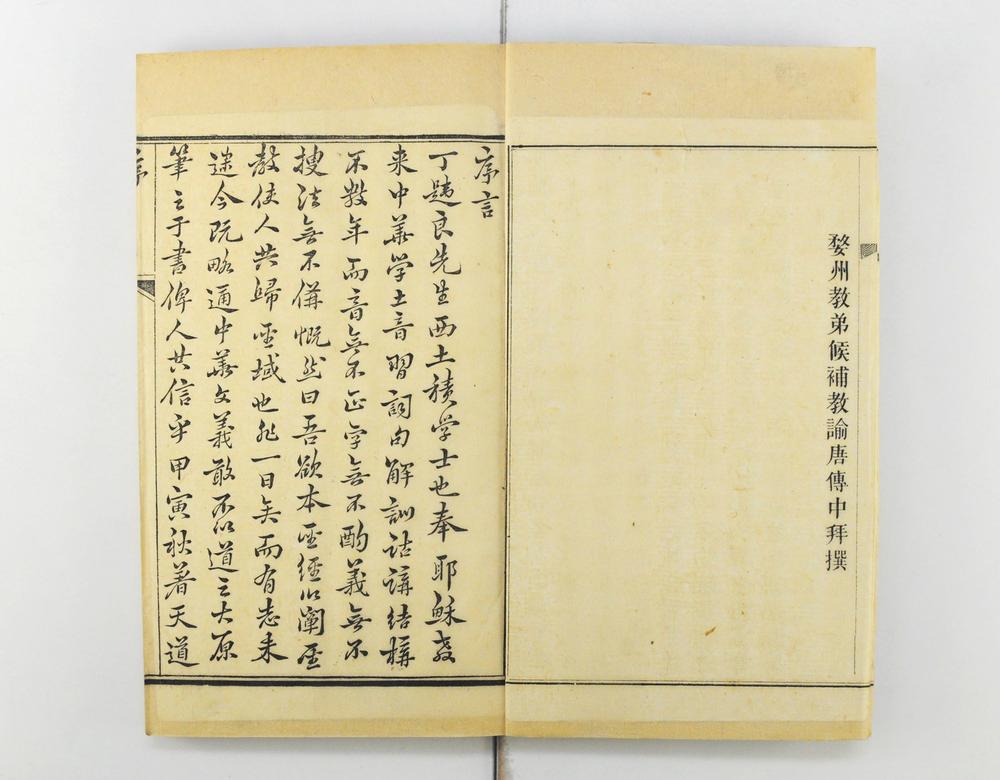 婺州教弟候補教諭唐傳中拜撰
序言
丁韙良先生西土積学士也奉耶穌教
来中華学土音習詞句解訓詁講結構
不数年而音無不正字無不酌義無不
搜法無不備慨然曰吾欲本聖經以闡聖
教使人共歸聖域也非一日矣而有志未
逮今既略通中華文義敢不以道之大原
筆之于書俾人共信乎甲寅秋著天道